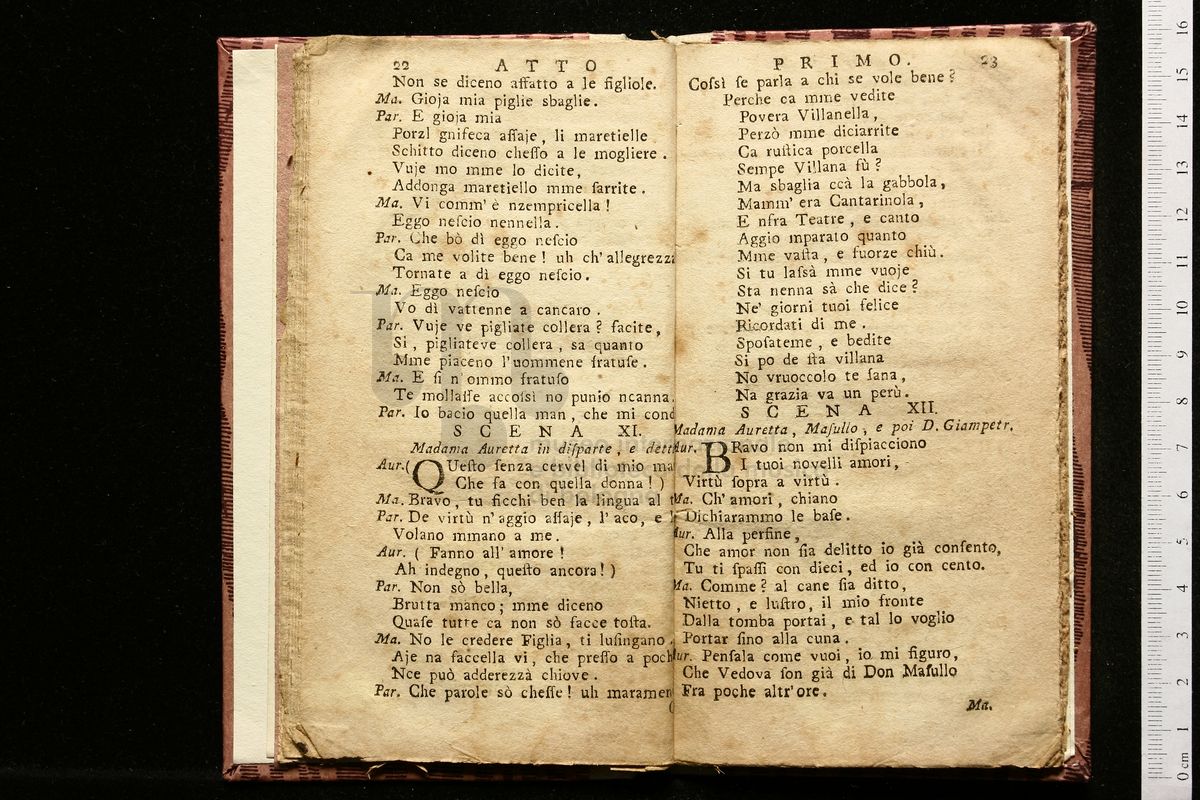 22 ATTO
Non se diceno affatto a le figliole.
Ma. Gioja mia piglie sbaglie.
Par. E gioja mia
Porzì gnifeca aſſaje, li maretielle
Schitto diceno cheſſo a le mogliere.
Vuje mo mme lo dicite,
Addonga maretiello mme ſarrite.
Ma. Vi comm' è nzempricella!
Eggo neſcio nennella.
Par. Che bò dì eggo neſcio
Ca me volite bene! uh ch'allegrezz
Tornate a dì eggo neſcio.
Ma. Eggo neſcio
Vo dì vattenne a cancaro.
Par. Vuje ve pigliate collera? facite,
Si, pigliateve collera, sa quanto
Mme piaceno l'uommene ſratuſe.
Ma. E ſi n'ommo ſratuſo
Te mollaſſe accoſsì no punio ncanna.
Par. Io bacio quella man, che mi con
SCENA XI.
Madama Auretta in diſparte, e dett
Aur.( QUeſto ſenza cervel di mio ma
Che fa con quella donna!)
Ma. Bravo, tu ficchi ben la lingua al
Par. De virtù n'aggio aſſaje, l'aco, e
Volano mmano a me.
Aur. ( Fanno all'amore!
Ah indegno, queſto ancora!)
Par. Non sò bella,
Brutta manco; mme diceno
Quaſe tutte ca non sò facce toſta.
Ma. No le credere Figlia, ti luſingano.
Aje na faccella vi, che preſſo a poch
Nce può adderezzà chiove.
Par. Che parole sò cheſſe! uh maramen
PRIMO. 23
Coſsì ſe parla a chi se vole bene?
Perche ca mme vedite
Povera Villanella,
Perzò mme diciarrite
Ca ruſtica porcella
Sempe Villana fù?
Ma sbaglia ccà la gabbola,
Mamm' era Cantarinola,
E nfra Teatre, e canto
Aggio mparato quanto
Mme vaſta, e fuorze chiù.
Si tu laſsà mme vuoje
Sta nenna sà che dice?
Ne' giorni tuoi felice
Ricordati di me.
Spoſateme, e bedite
Si po de ſta villana
No vruoccolo te ſana,
Na grazia va un perù.
SCENA XII.
Madama Auretta, Maſullo, e poi D. Giampetr.
Aur. BRavo non mi diſpiacciono
I tuoi novelli amori,
Virtù ſopra a virtù.
Ma. Ch'amori, chiano
Dichiarammo le baſe.
Aur. Alla perfine,
Che amor non ſia delitto io già conſento,
Tu ti ſpaſſi con dieci, ed io con cento.
Ma. Comme? al cane ſia ditto,
Nietto, e luſtro, il mio fronte
Dalla tomba portai, e tal lo voglio
Portar ſino alla cuna.
Aur. Penſala come vuoi, io mi figuro,
Che Vedova ſon già di Don Maſullo
Fra poche altr'ore.
Ma.